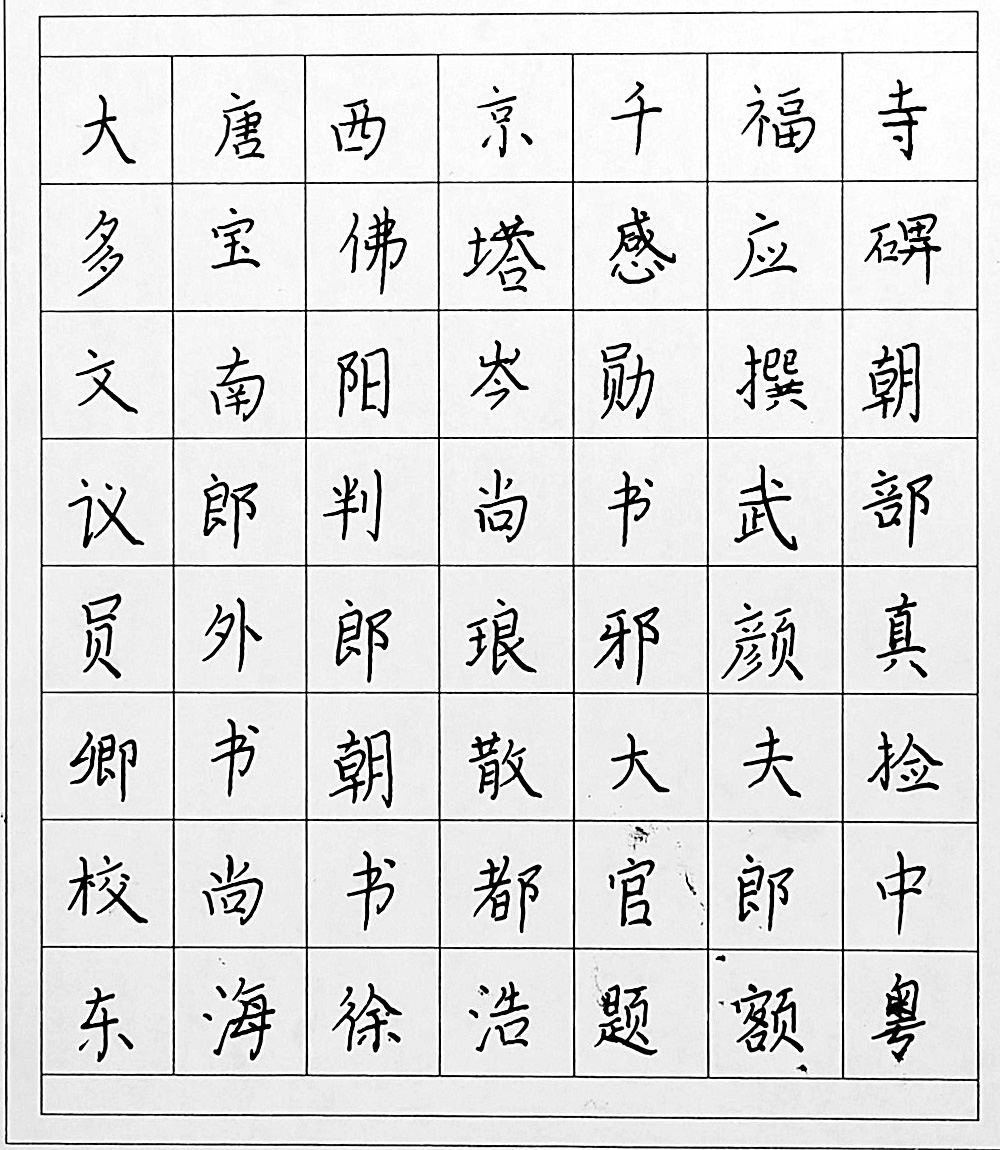 大唐西京千福寺
多宝佛塔感应碑
文南阳岑勋撰朝
议郎判尚书武部
员外郎琅邪颜真
卿书朝散大夫捡
校尚书都官郎中
东海徐浩题额粤